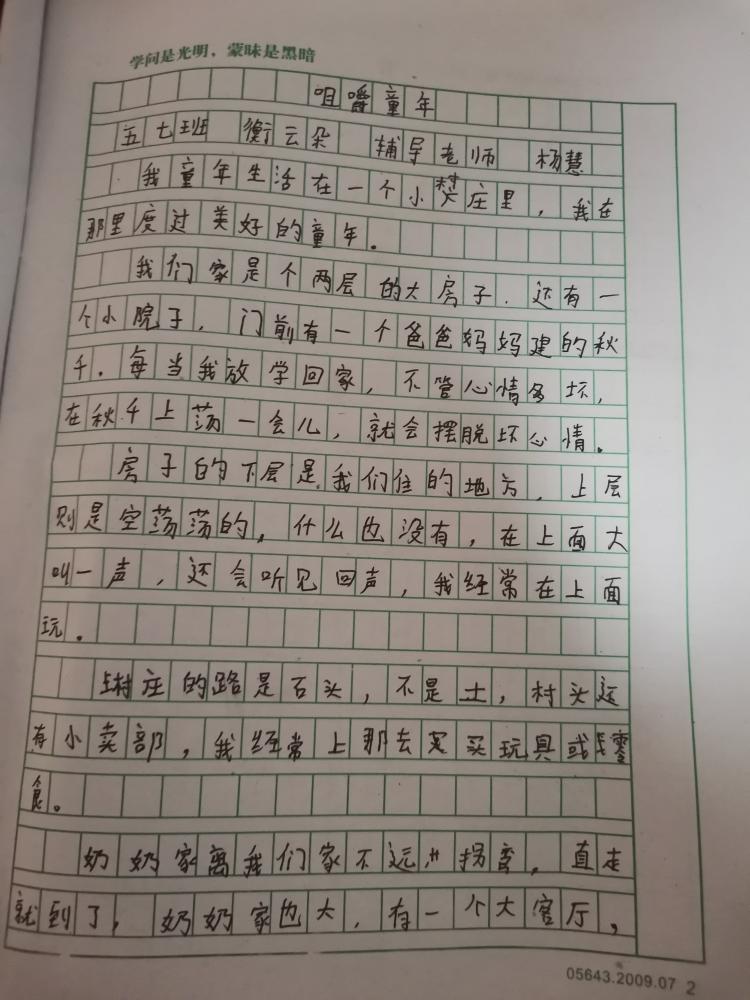 学问是光明，蒙昧是黑暗
咀嚼童年
五七班 衡云朵 辅导老师 杨慧
我童年生活在一个小村庄里，我在
那里度过美好的童年。
我们家是个两层的大房子．还有一
个小院子，门前有一个爸爸妈妈建的秋
千．每当我放学回家，不管心情多坏，
在秋千上荡一会儿，就会摆脱坏心情。
房子的下层是我们住的地方，上层
则是空荡荡的，什么也没有，在上面大
叫一声，还会听见回声，我经常在上面
玩．
村庄的路是石头，不是土，村头还
有小卖部，我经常上那去买买玩具或零
食。
奶奶家离我们家不远，拐弯，直走
就到了，奶奶家也大，有一个大客厅，
05643.2009.07 2